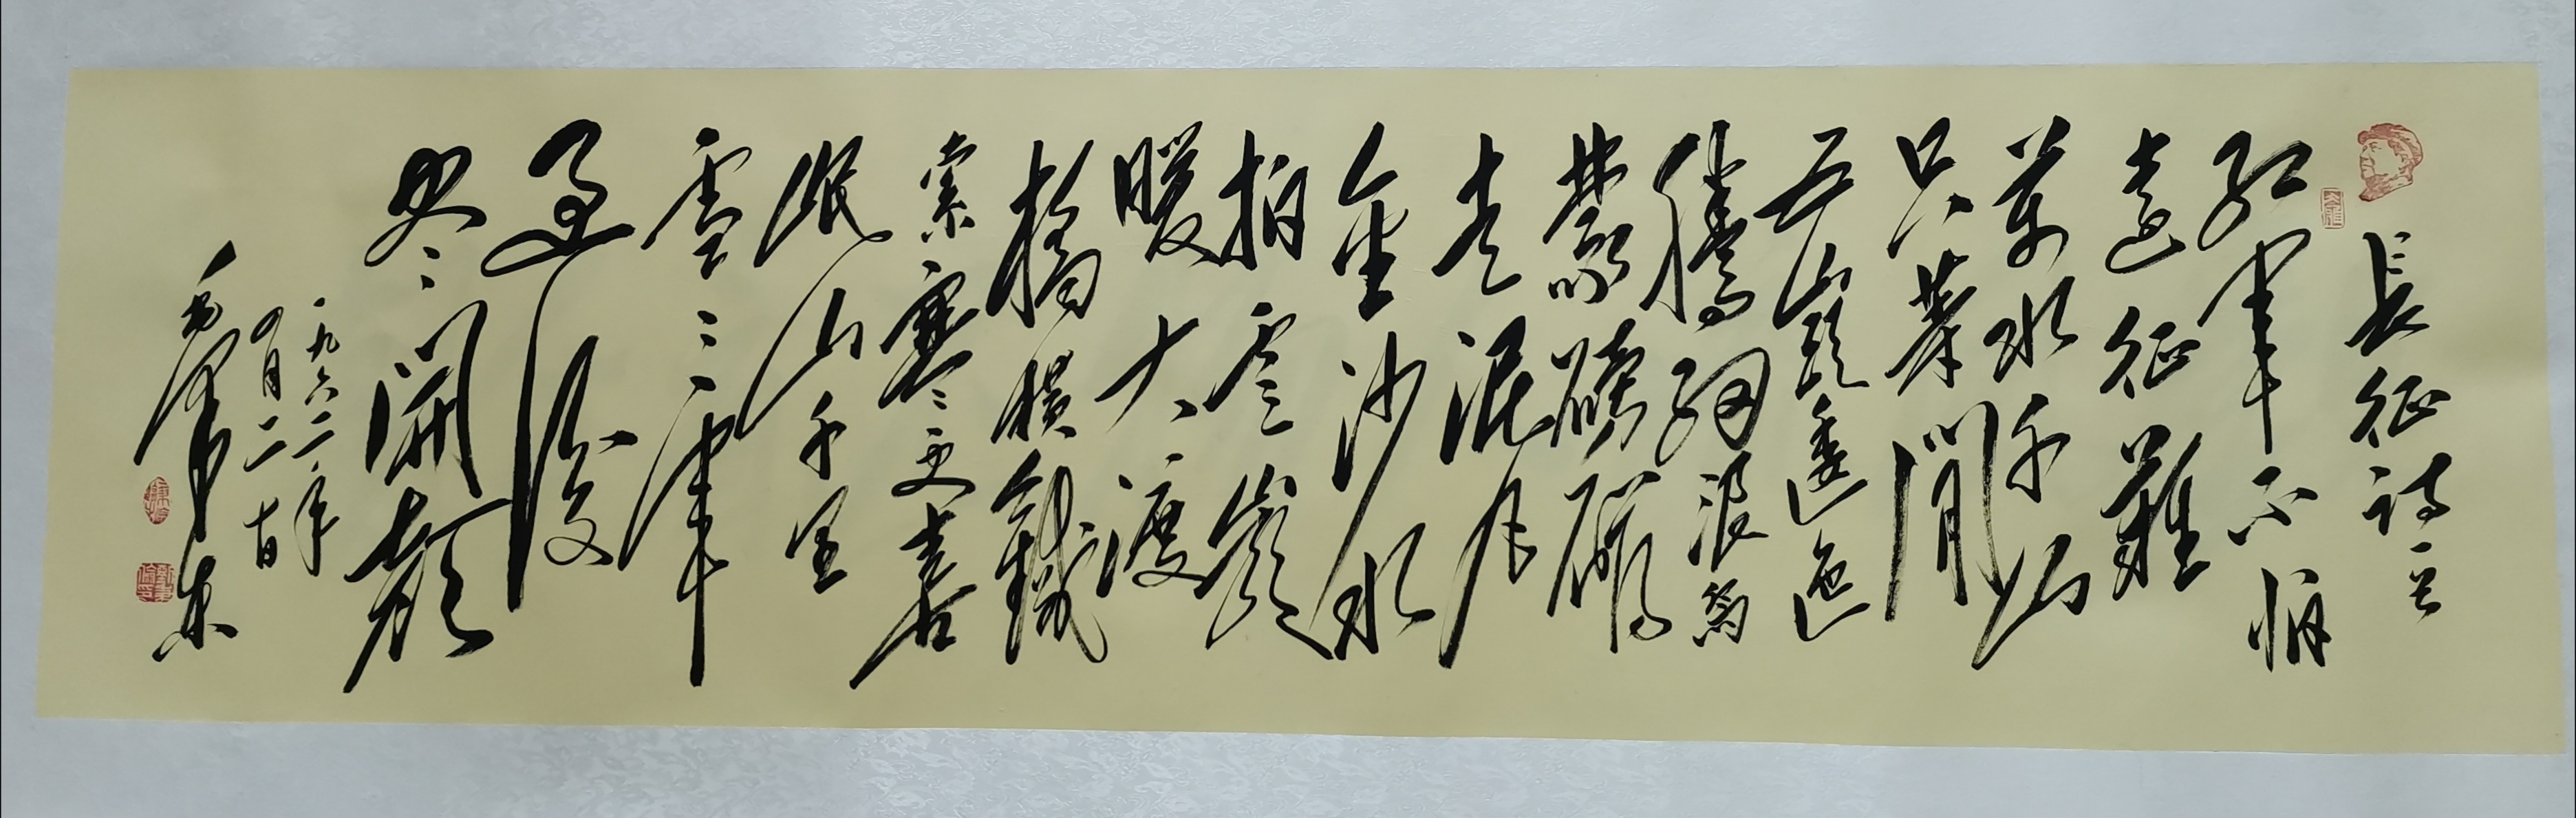 長征詩一首
紅軍不怕
遠征難
萬水千山
只等閒
五嶺逶迤
騰細浪烏
蒙磅礴
走泥丸
金沙水
拍雲崖
暖大渡
橋橫鐵
索寒更喜
岷山千里
雪三軍
過後
盡開顏
一九六二年
四月二十日
毛澤東